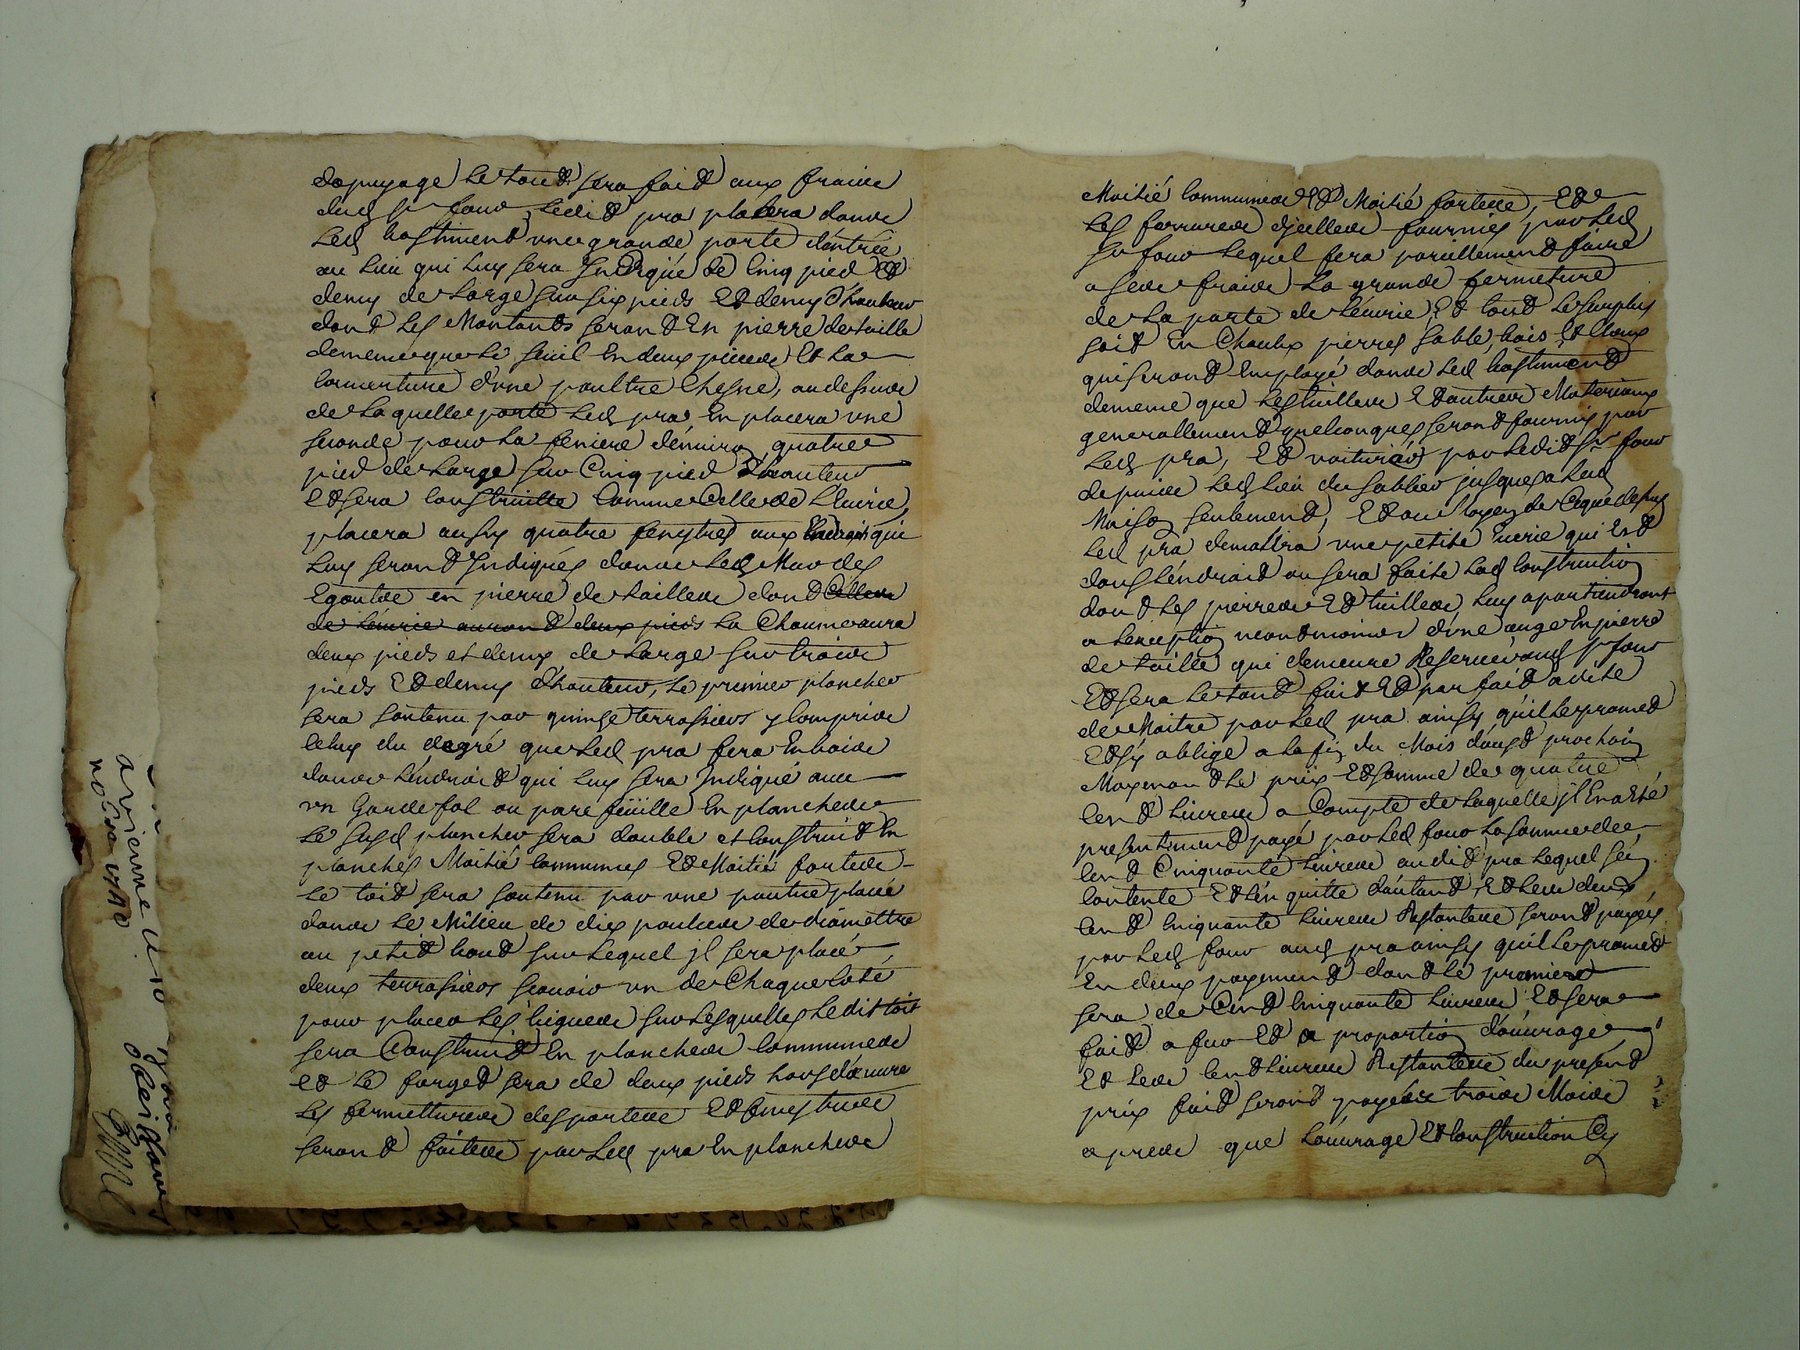 dapuyage le tout sera fait aux fraix
dud sr four, ledit pra placera dans
led bastiment une grande porte d'entrée
au lieu qui luy sera Indiqué de Cinq pied Et
demy de large sur six pieds Et demy d'hauteur
dont les Montants seront En pierre de taille
de meme que le seuil En deux pieces Et la
couverture d'une poultre Chesne, au dessus
de la quelle porte led pra En placera une
seconde pour la feniere d'environ quatre
pied de large sur Cinq pied d'hauteur
Et sera construitte Comme Celle de l'Ecurie,
placera aussy quatre fenestres aux Endroits qui
luy seront Indiqués dans led Mur des
Egouts en pierre de tailles dont Celles
de l'écurie auront deux pieds la Chacune aura
deux pieds et demy de large sur trois
pieds Et demy d'hauteur, le premier plancher
sera soutenu par quinze terrassiers y Compris
celuy du degré que led pra fera En bois
dans l'éndroit qui luy sera Indiqué avec
un Gardefol ou parefeüille En planches
le susd plancher sera double et construit En
planches Moitié communes Et Moitié fortes
le toit sera soutenu par une poutre placé
dans le Milieu de dix pouces de diamettre
au petit bout sur lequel jl sera placé
deux terrassiers scavoir un de Chaque Coté
pour placer les ligues sur lesquelles ledit toit
sera Construit En planches communes
et le forget sera de deux pieds hors d'oeuvre
les fermettures des portes Et fenestres
seront faites par led pra En planches
Moitié communes Et Moitié fortes, Et
les ferrures d'jcelles fournies par led
sr four lequel fera pareillement faire
a ses fraix la grande fermeture
de la porte de l'écurie, Et tout le surplus
soit En Chaulx pierres sable, bois Et Cloux
qui seront Employé dans led bastiment
de meme que les tuilles Et autres Materiaux
generallement quelconques seront fournis par
led pra, Et voiturés par ledit sr four
depuis led lieu du sablier jusques a lad
Maison seulement, Et au Moyen de Ce que dessus
led pra demollira une petite Ecurie qui Est
dans l'éndroit ou sera faite lad Construction
dont les pierres Et tuilles, luy apartiendront
a l'exception neantmoins d'une auge En pierre
de taille qui demeure Reservé aud sr four
Et sera le tout fait Et parfait a dite
de Maitre par led pra ainsy qu'il le promet
Et s'y oblige a la fin du Mois d'aoust prochain
Moyenant le prix Et somme de quatre
cent livres a Compte de laquelle jl En a Eté
presentement payé par led four la somme de
cent Cinquante livres audit pra lequel s'én
contente Et l'én quitte d'autant, Et les deux
cent Cinquante livres Restantes seront payés
par led four aud pra ainsy qu'il le promet
En deux payements dont le premier
sera de Cent Cinquante livres Et sera
fait a fur Et a proportion d'ouvrage
Et les cent livres Restantes du present
prix fait seront payées trois Mois
apres que l'ouvrage Et Construction Cy